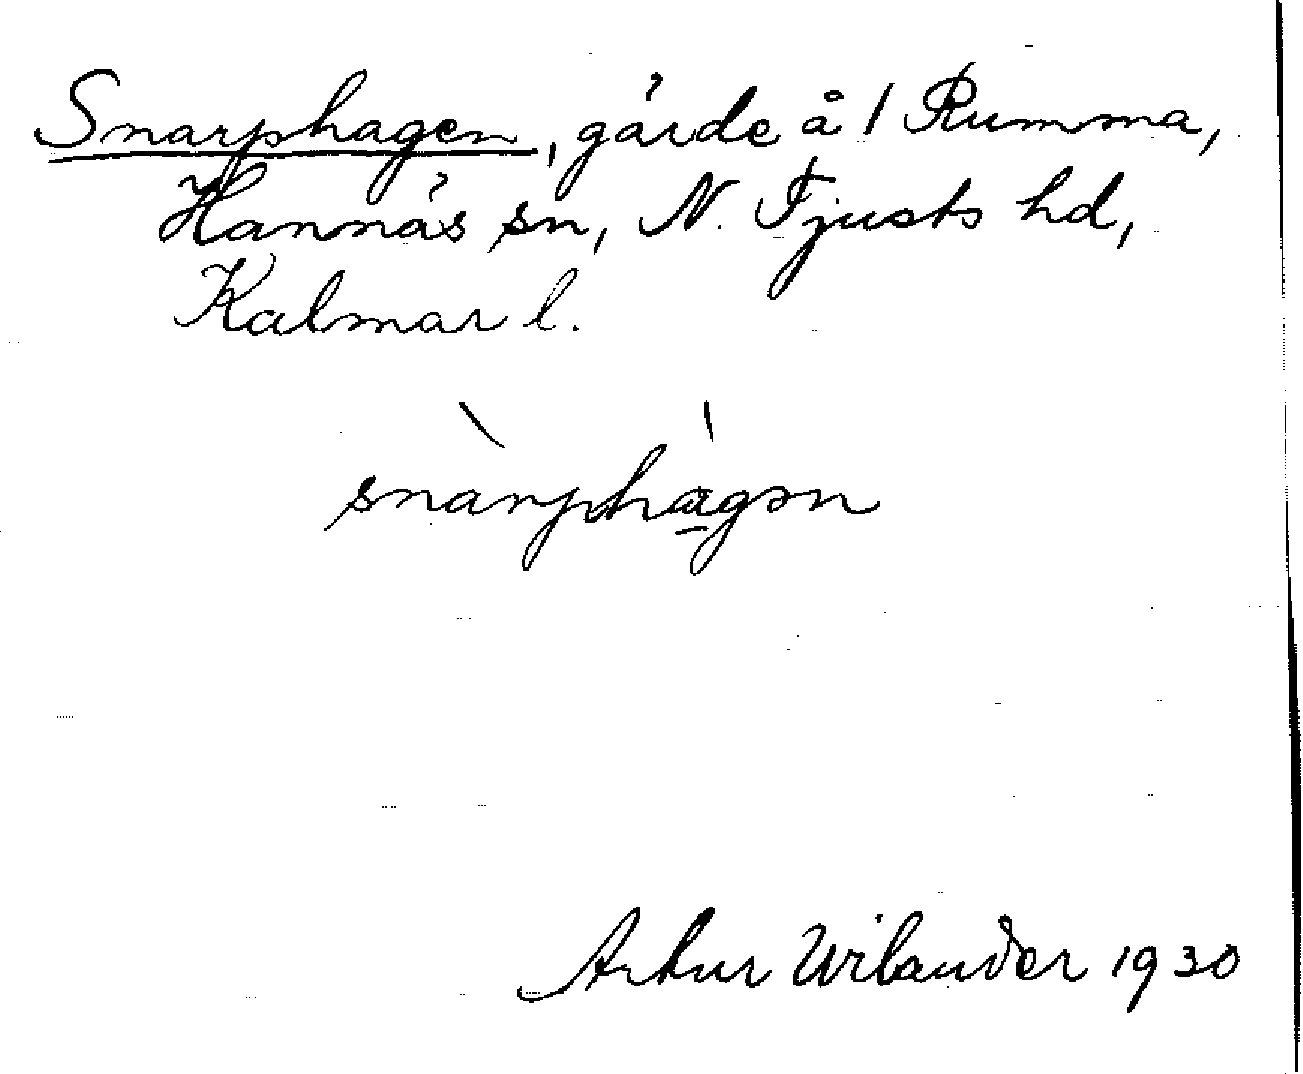 Snarphagen, gärde å 1 Rumma,
Hannäs sn, N. Tjusts hd,
Kalmar l.
snàrphàgən
Artur Wilander 1930